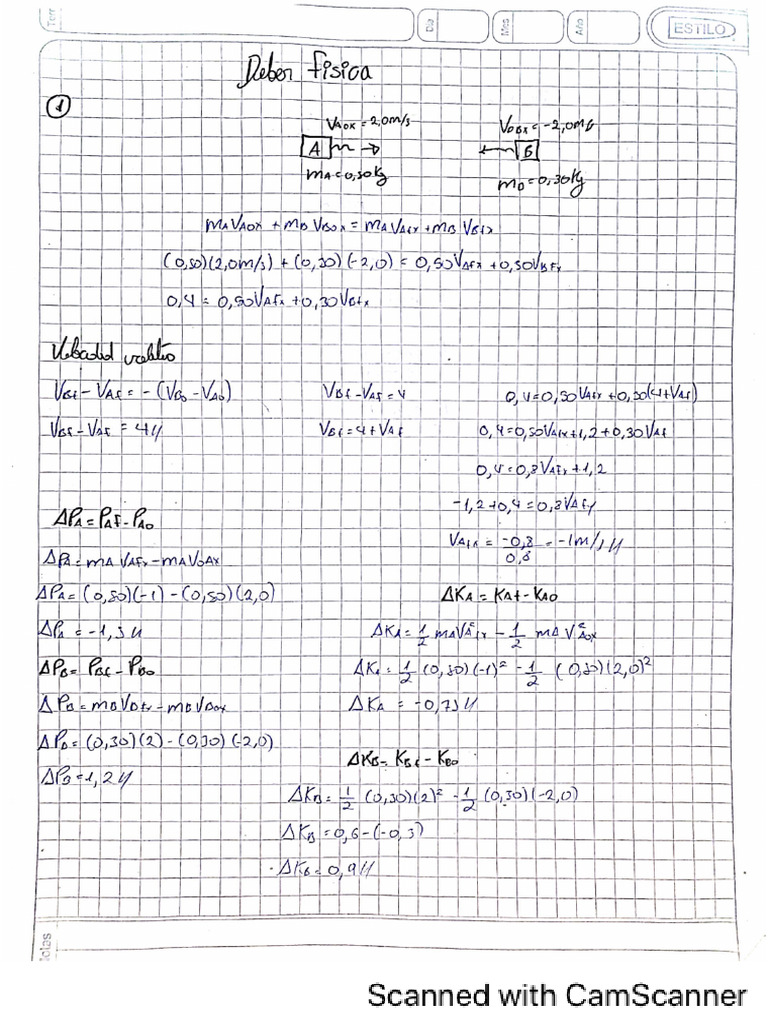 Día
Mes
Año
ESTILO
Deber física
1
VAox = 2,0m/s
VBox = -2,0m/s
A
B
mA = 0,50Kg
mB = 0,30Kg
mAVAox + mB VBox = mAVAfx + mB VBfx
(0,50)(2,0m/s) + (0,30)(-2,0) = 0,50VAfx + 0,30VBfx
0,4 = 0,50VAfx + 0,30VBfx
VBf - VAf = -(VBo - VAo)
VBf - VAf = 4
VBf - VAf = 4
VBf = 4 + VAf
0,4 = 0,50VAfx + 0,30(4+VAf)
0,4 = 0,50VAfx + 1,2 + 0,30VAf
0,4 = 0,8VAfx + 1,2
-1,2 + 0,4 = 0,8VAfx
VAfx = -0,8/0,8 = -1m/s
ΔPA = PAf - PAo
ΔPA = mA VAfx - mAVoAx
ΔPA = (0,50)(-1) - (0,50)(2,0)
ΔPA = -1,5
ΔPB = PBf - PBo
ΔPB = mBVBfx - mBVBox
ΔPB = (0,30)(2) - (0,30)(-2,0)
ΔPB = 1,2
ΔKA = KAf - KAo
ΔKA = 1/2 mAVA²fx - 1/2 mA VA²ox
ΔKA = 1/2 (0,50)(-1)² - 1/2 (0,50)(2,0)²
ΔKA = -0,75
ΔKB = KBf - KBo
ΔKB = 1/2 (0,30)(2)² - 1/2 (0,30)(-2,0)
ΔKB = 0,6 - (-0,3)
ΔKB = 0,9
Scanned with CamScanner